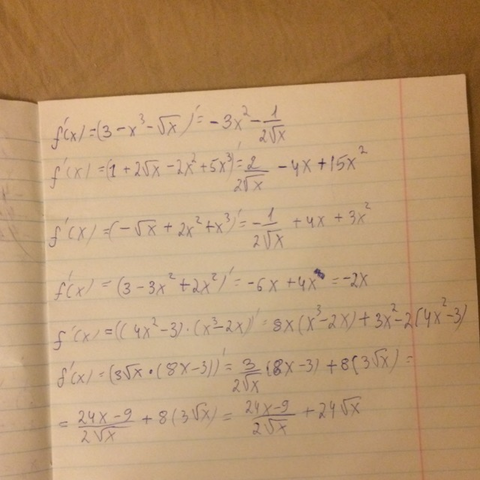 f'(x) = (3 - x³ - √x)' = -3x² - 1/2√x
f'(x) = (1 + 2√x - 2x² + 5x³)' = 2/2√x - 4x + 15x²
f'(x) = (-√x + 2x² + x³)' = -1/2√x + 4x + 3x²
f'(x) = (3 - 3x² + 2x²)' = -6x + 4x = -2x
f'(x) = ((4x² - 3) · (x³ - 2x))' = 8x(x³ - 2x) + 3x² - 2(4x² - 3)
f'(x) = (3√x · (8x - 3))' = 3/2√x (8x - 3) + 8(3√x) =
= 24x - 9/2√x + 8(3√x) = 24x - 9/2√x + 24√x